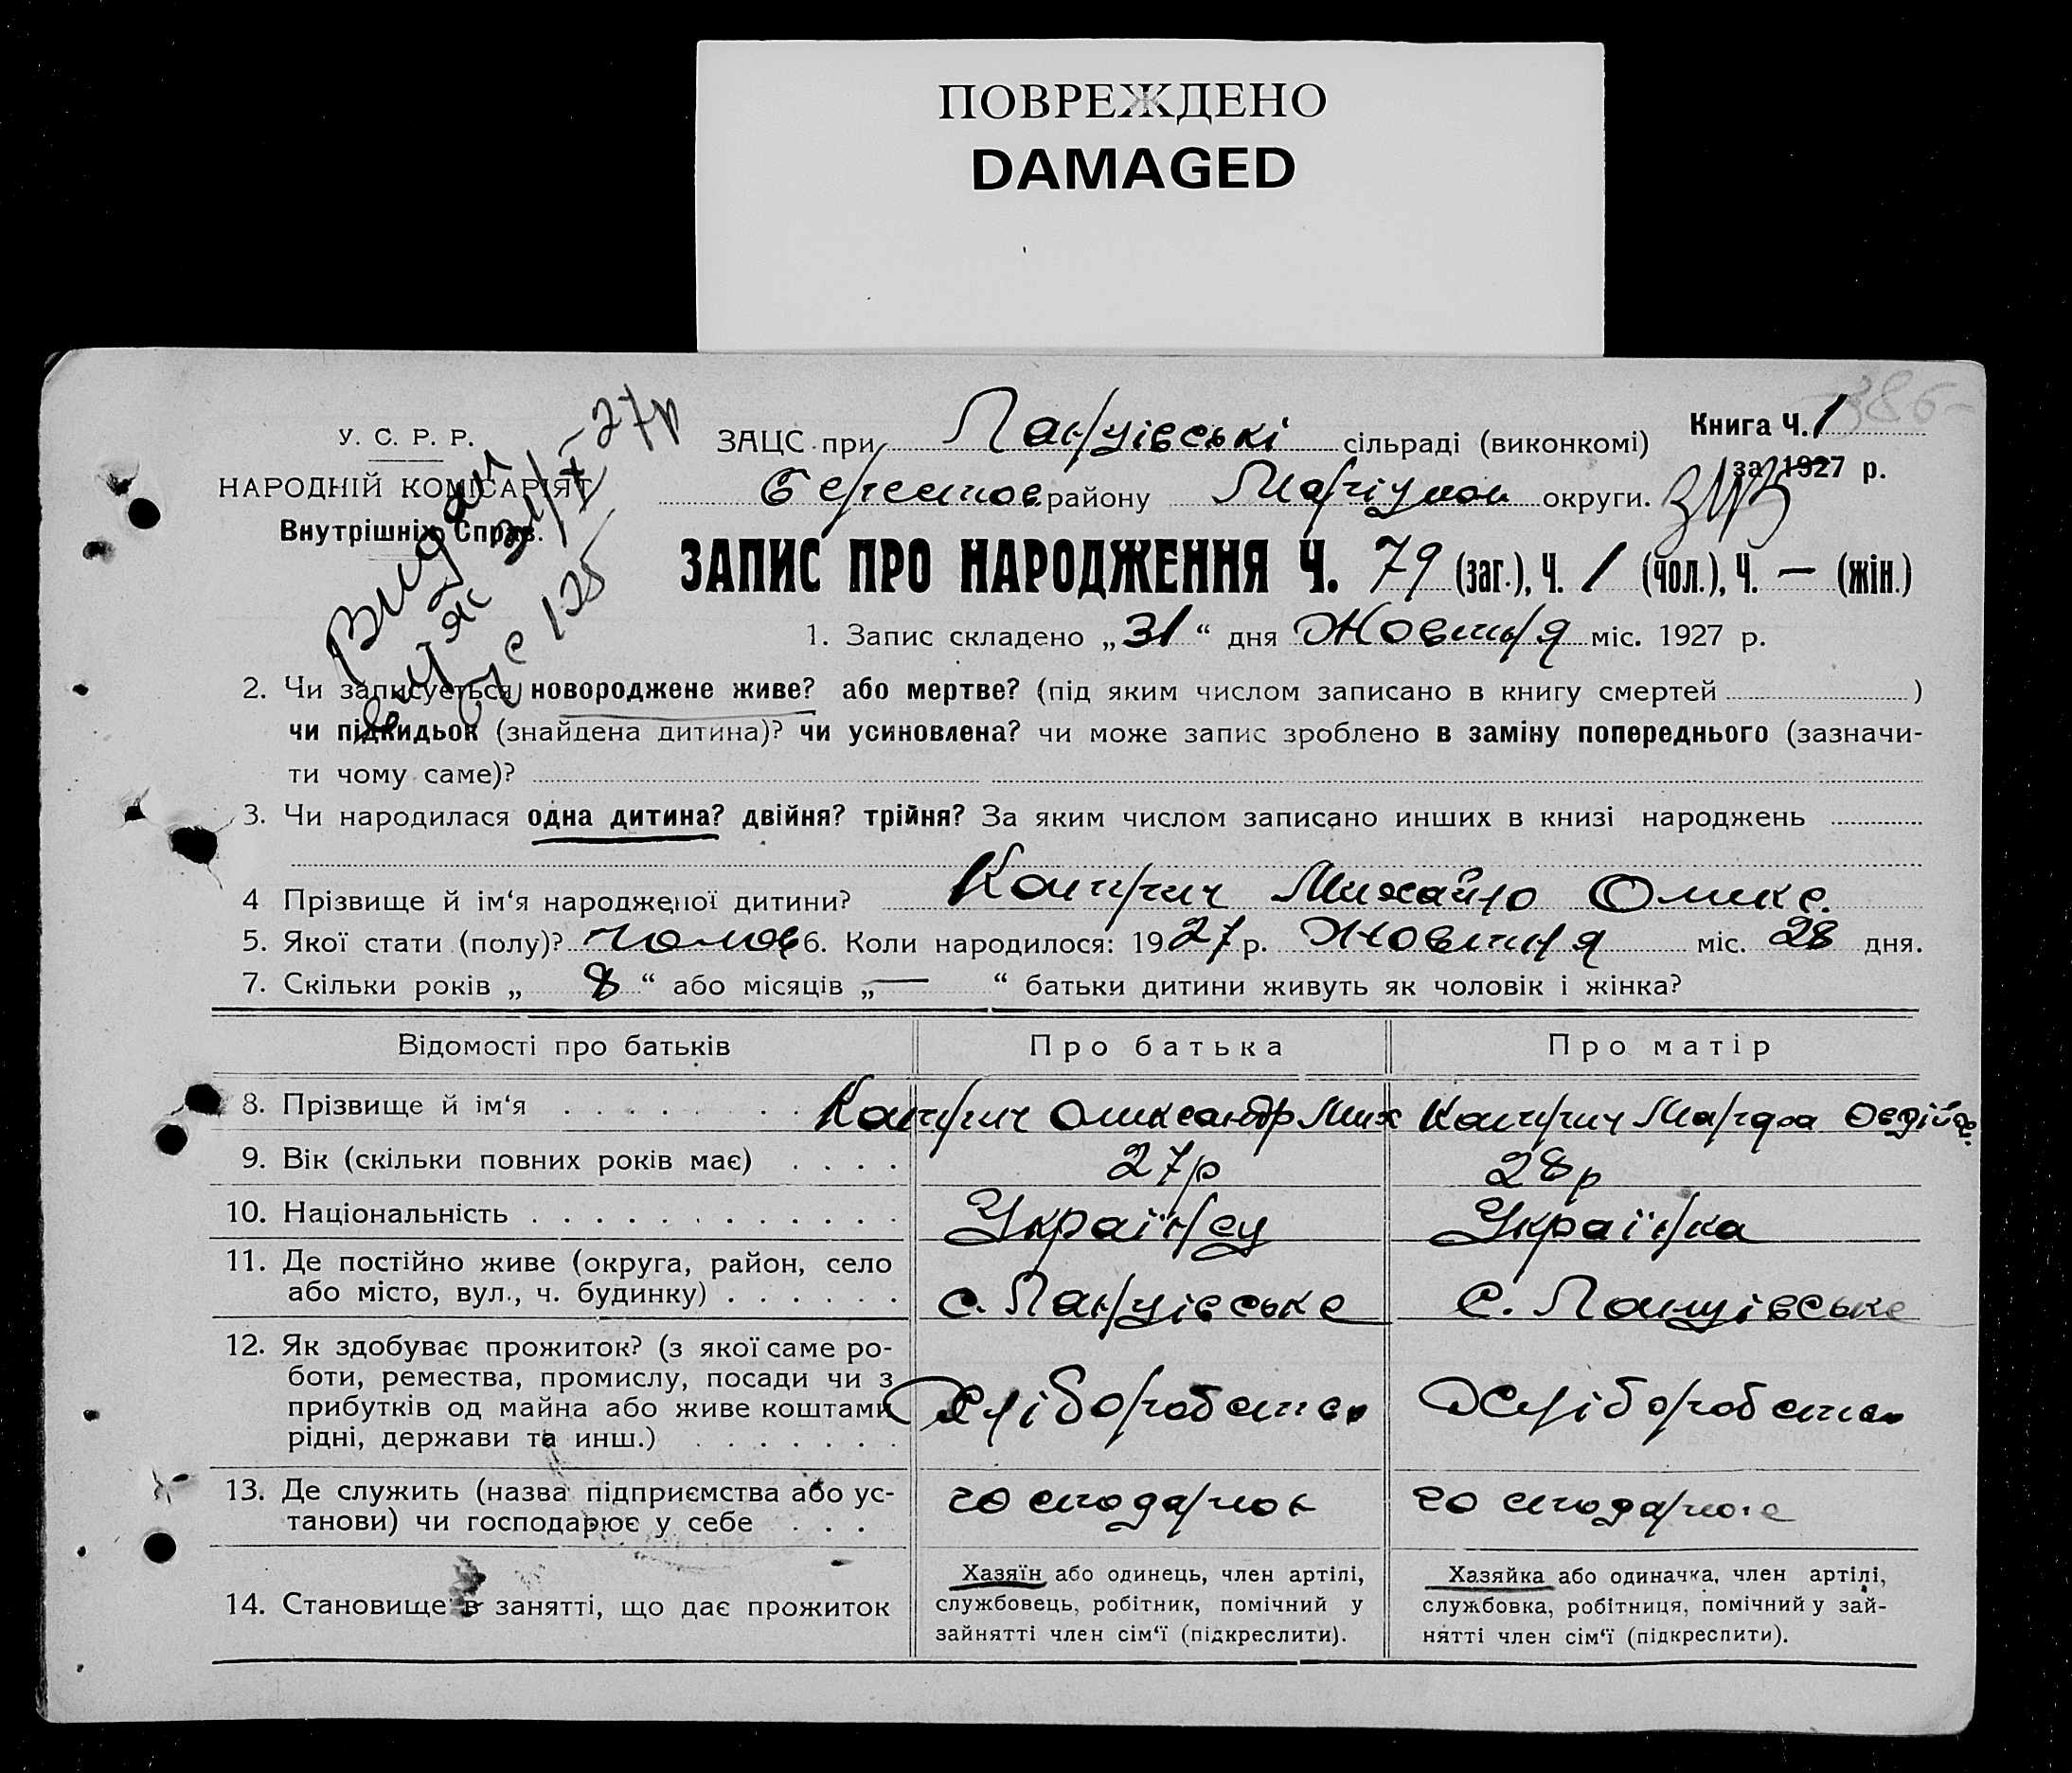 ПОВРЕЖДЕНО
DAMAGED
386-
У. С. Р. Р.
НАРОДНІЙ КОМІСАРІЯТ
Внутрішніх Справ.
Видан
витяг 31/X-27р
125
ЗАЦС при Ланцівські сільраді (виконкомі)
Книга Ч. 1
за 1927 р.
Берестов району Маріупол округи.
ЗАПИС ПРО НАРОДЖЕННЯ Ч. 79 (заг.), Ч. 1 (чол.), Ч. — (жін.)
1. Запис складено „31“ дня Жовтня міс. 1927 р.
2. Чи записується новороджене живе? або мертве? (під яким числом записано в книгу смертей )
чи підкидьок (знайдена дитина)? чи усиновлена? чи може запис зроблено в заміну попереднього (зазначи-
ти чому саме)?
3. Чи народилася одна дитина? двійня? трійня? За яким числом записано инших в книзі народжень
4 Прізвище й ім‘я народженої дитини? Михайло Оликс.
5. Якої стати (полу)? чолов 6. Коли народилося: 1927 р. Жовтня міс. 28 дня.
7. Скільки років „ 8 “ або місяців „ — “ батьки дитини живуть як чоловік і жінка?
Відомості про батьків Про батька Про матір
8. Прізвище й ім‘я Олександр Мих Марфа Овдійов.
9. Вік (скільки повних років має) 27р 28р
10. Національність Українец Українка
11. Де постійно живе (округа, район, село
або місто, вул., ч. будинку) с. Ланцівське с. Ланцівське
12. Як здобуває прожиток? (з якої саме ро-
боти, ремества, промислу, посади чи з
прибутків од майна або живе коштами
рідні, держави та инш.) Хліборобство Хліборобство
13. Де служить (назва підприємства або ус-
танови) чи господарює у себе
14. Становище в занятті, що дає прожиток
Хазяїн або одинець, член артілі,
службовець, робітник, помічний у
зайнятті член сім‘ї (підкреслити).
Хазяйка або одиначка, член артілі,
службовка, робітниця, помічний у зай-
нятті член сім‘ї (підкреслити).